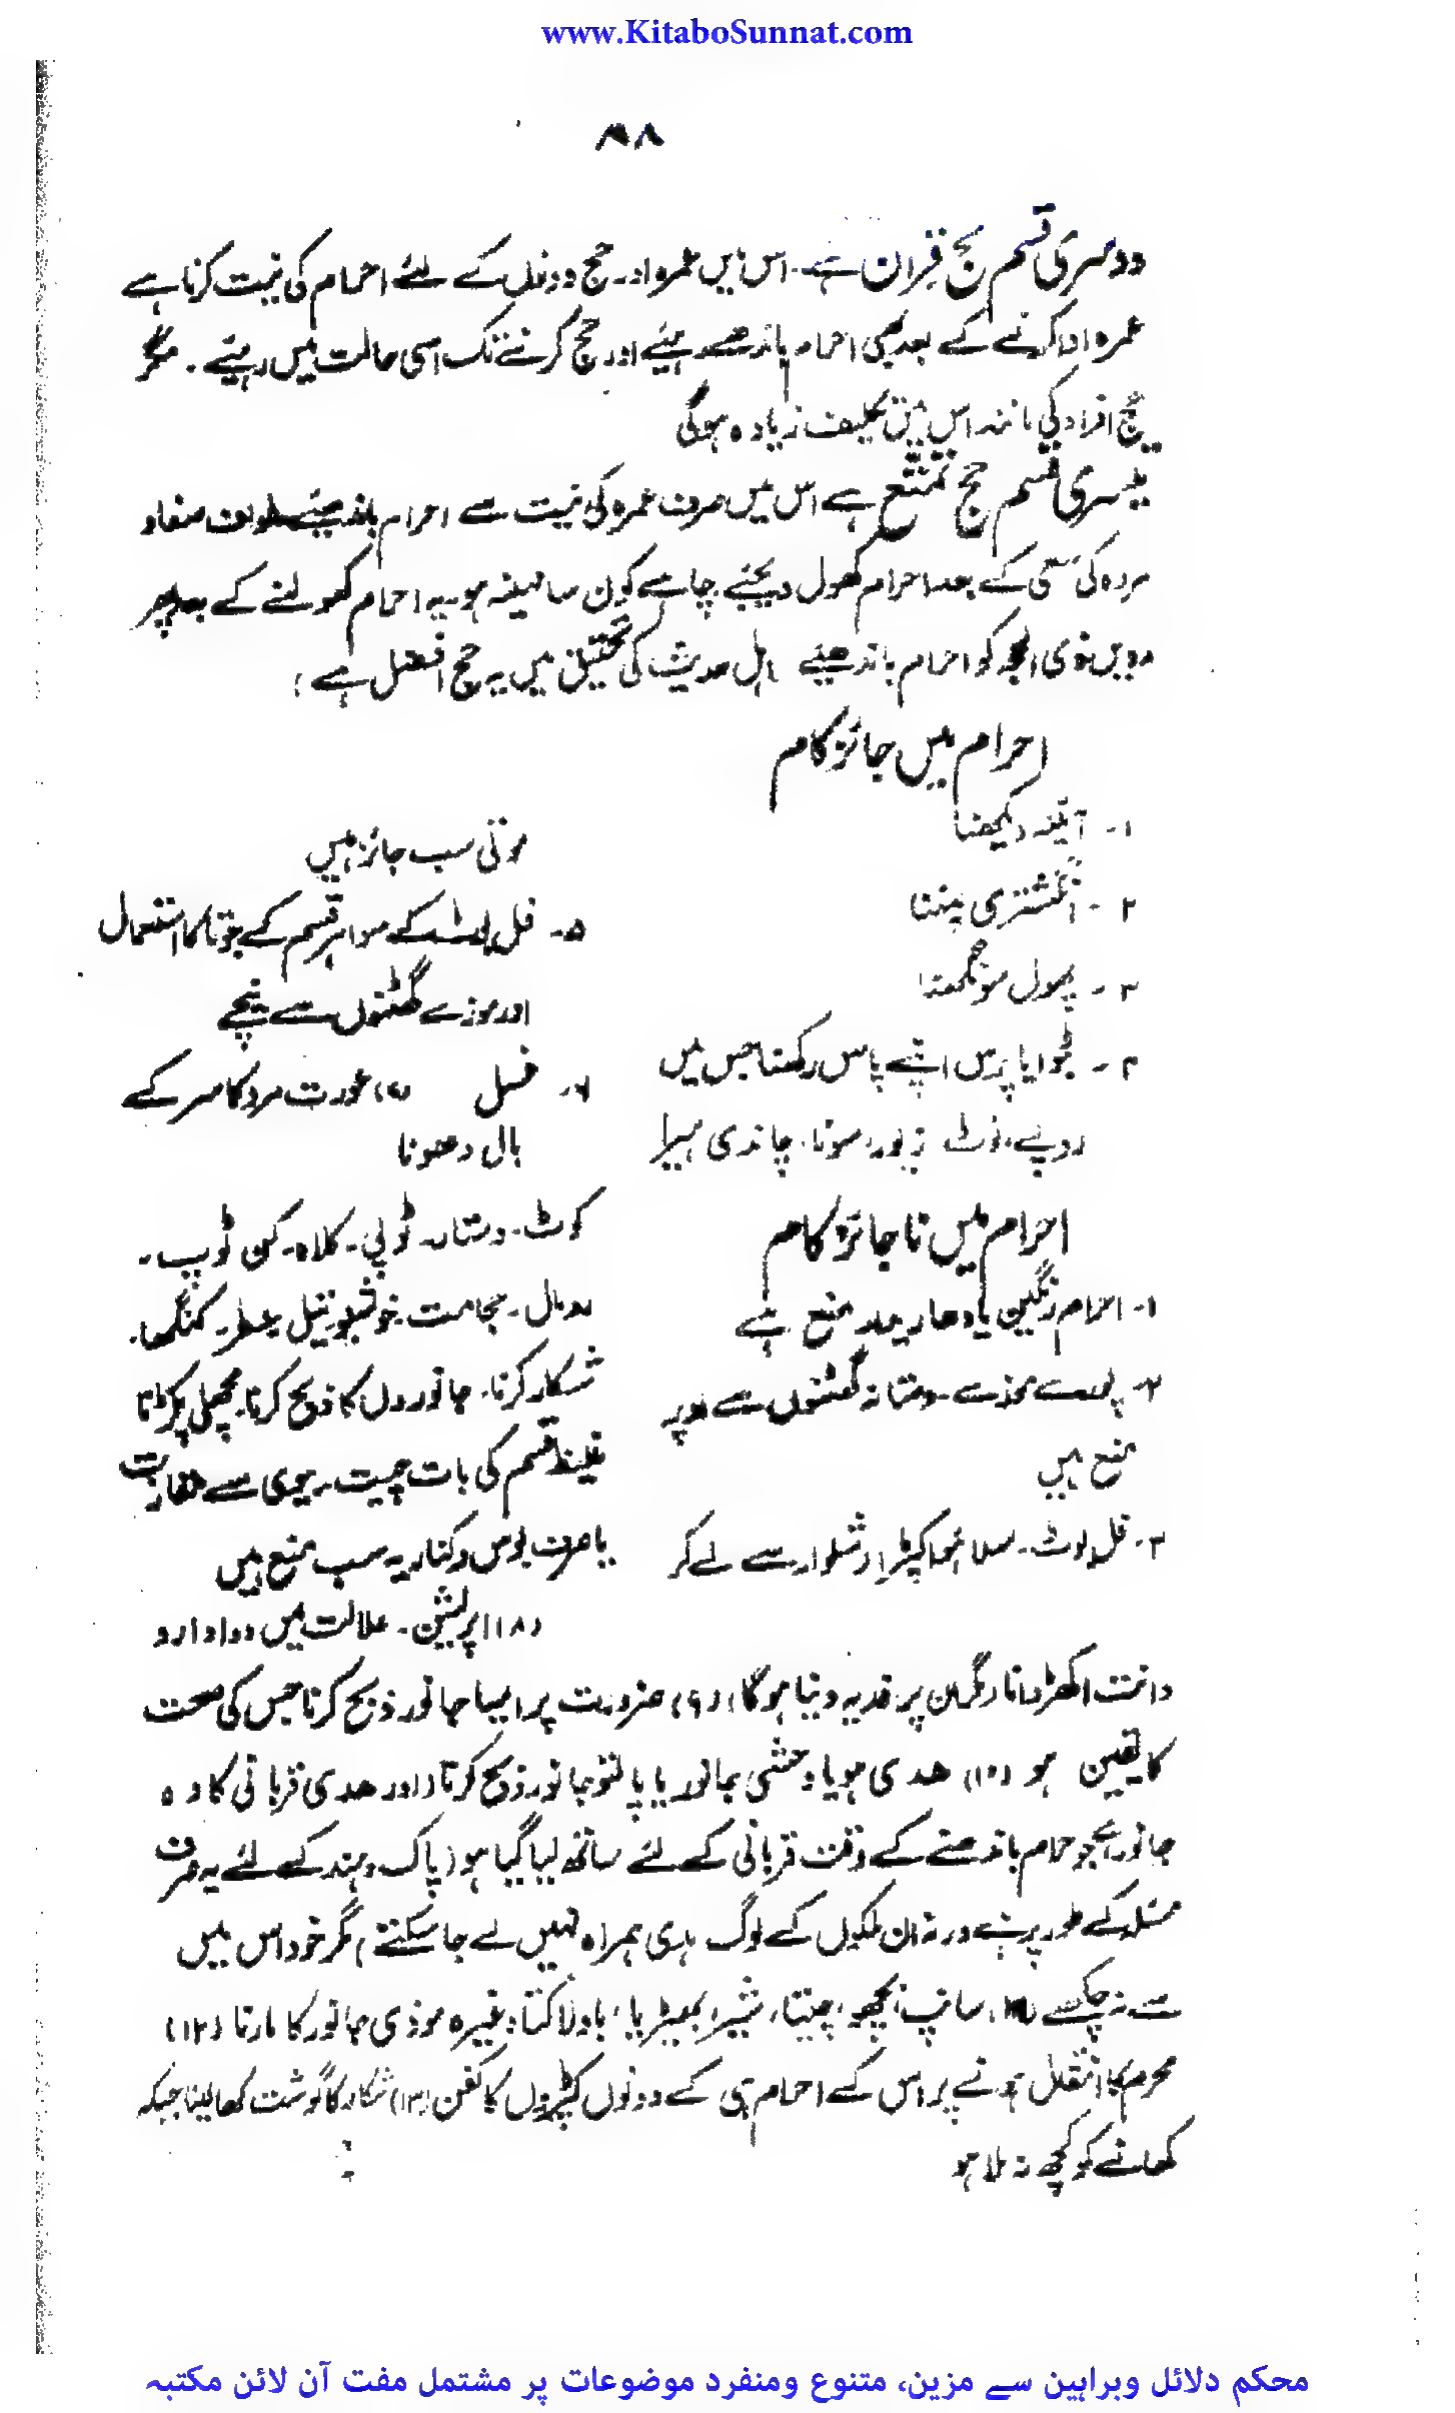 www.KitaboSunnat.com
دوسری قسم حج قِران ہے۔ اس میں عمرہ اور حج دونوں کے لئے احرام کی نیت کرنا ہے
عمرہ ادا کرنے کے بعد بھی احرام باندھے رہیئے اور حج کرنے تک اسی حالت میں رہیئے۔ مگر
حج افراد کی مانند اس میں تکلیف زیادہ ہوگی
تیسری قسم حج تمتّع ہے اس میں صرف عمرہ کی نیت سے احرام باندھیئے طواف صفا و
مروہ کی سعی کے بعد احرام کھول دیجئے چاہے کون سا مہینہ ہو یہ احرام کھولنے کے بعد پھر
ذی الحجہ کو احرام باندھیئے اہل حدیث کی تحقیق میں یہ حج افضل ہے،
احرام میں جائز کام
۱۔ آئینہ دیکھنا
۲۔ انگشتری پہننا
۳۔ پھول سونگھنا
۴۔ بٹوا یا پرس اپنے پاس رکھنا جس میں
روپے، نوٹ زیور، سونا، چاندی ہیرا
موتی سب جائز ہیں
۵۔ فل بوٹ کے سوا ہر قسم کے جوتا کا استعمال
اور موزے گھٹنوں سے نیچے
۶۔ غسل (۷) عورت مرد کا سر کے
بال دھونا
احرام میں نا جائز کام
۱۔ احرام رنگین یا دھاریدار منع ہے
۲۔ موزے۔ دستانہ گھٹنوں سے اوپر
منع ہیں
۳۔ فل بوٹ۔ سلا ہوا کپڑا شلوار سے لے کر
کوٹ۔ دستار۔ ٹوپی۔ کلاہ۔ کن ٹوپ۔
رومال۔ حجامت۔ خوشبو۔ تیل۔ عطر۔ کنگھا۔
شکار کرنا۔ جانوروں کا ذبح کرنا۔ مچھلی پکڑنا
قسم کی بات چیت۔ بیوی سے مقاربت
یا صرف بوس و کنار یہ سب منع ہیں
(۸) اپریشن۔ علالت میں دوا دارو
دانت اکھڑوانا پر فدیہ دینا ہوگا، (۹) ضرورت پر ایسا جانور ذبح کرنا جس کی صحت
کا یقین ہو (۱۰) ھدی ہو یا وحشی جانور یا پالتو جانور ذبح کرنا (اور ھدی قربانی کا وہ
جانور ہے جو احرام باندھنے کے وقت قربانی کے لئے ساتھ لیا گیا ہو (پاک و ہند کے لئے یہ صرف
مسئلہ کے طور پر ہے ورنہ ان ملکوں کے لوگ ہدی ہمراہ نہیں لے جا سکتے) مگر خود اس میں
سے نہ چکھے (۱۱) سانپ، بچھو، چیتا، شیر، بھیڑیا، باولا کتا وغیرہ موذی جانور کا مارنا (۱۲)
محرم کا انتقال ہونے پر اس کے احرام ہی کے دونوں کپڑوں کا کفن (۱۳) شکار کا گوشت کھا لینا جبکہ
کھانے کو کچھ نہ ملا ہو
محکم دلائل وبراہین سے مزین، متنوع ومنفرد موضوعات پر مشتمل مفت آن لائن مکتبہ